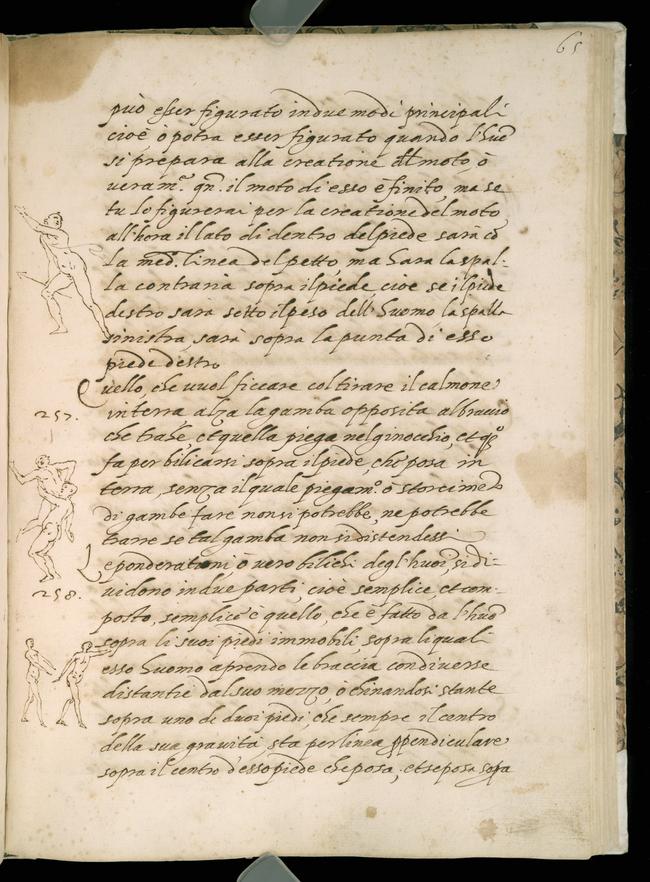 65
può esser figurato in due modi principali
cioè ò potra esser figurato quando l'huō
si prepara alla creatione del moto, ò
veram.^e qñ. il moto di esso è finito, ma se
tu lo figurerai per la creatione del moto
all'hora il lato di dentro del piede sarà cō
la med.^a linea del petto, ma harà la spal-
la contraria sopra il piede cioè se il piede
destro sarà sotto il peso dell'huomo la spalla
sinistra sarà sopra la punta di esso
piede destro
Quello che vuol ficcare col tirare il calmone
257. in terra alza la gamba opposita al braccio
che trahe, et quella piega nel ginocchio, et q.^o
fa per bilicarsi sopra il piede, che posa in
terra, senza il quale piegam.^o ò storcimen.^o
di gambe fare non si potrebbe, ne potrebbe
trarre se tal gamba non si distendessi
Le ponderationi, ò vero bilichi degl'huoī, si di-
258. vidono in due parti, cioè semplice, et com-
posto, semplice è quello, che è fatto da l'huō
sopra li suoi piedi immobili, sopra li quali
esso huomo aprendo le braccia con diverse
distantie dal suo mezzo, ò chinandosi stante
sopra uno de duoi piedi, che sempre il centro
della sua gravità sta per linea ppendiculare
sopra il centro d'esso piede che posa, et se posa sopra